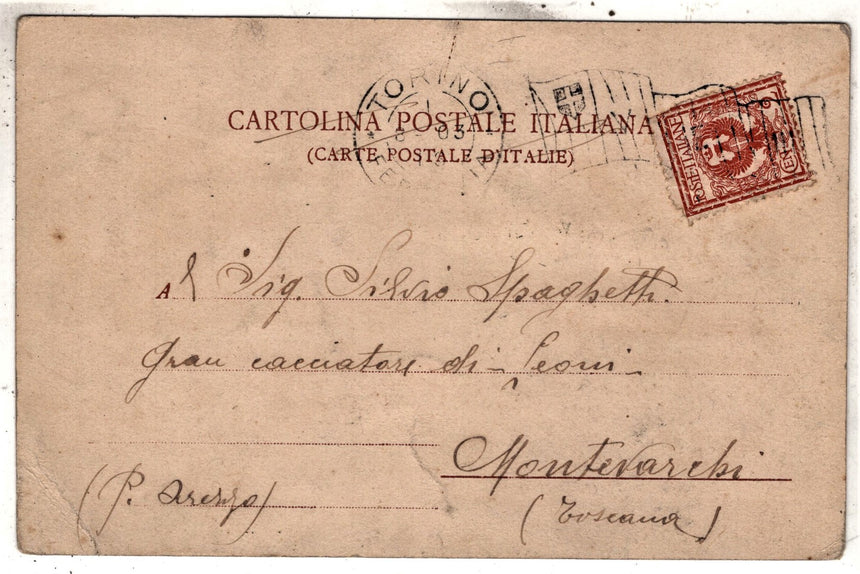 TORINO
8 03
FERROVIA
CARTOLINA POSTALE ITALIANA
(CARTE POSTALE D'ITALIE)
POSTE ITALIANE
A l Sig. Silvio Spaghetti.
Gran cacciatore di Leoni
Montevarchi
(P. Arezzo)
(Toscana)